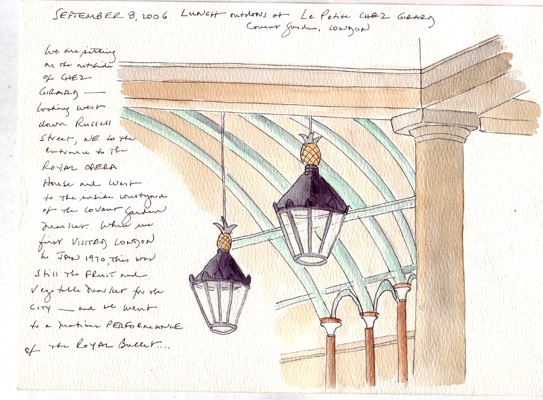 SEPTEMBER 8, 2006 LUNCH outdoors at Le Petite CHEZ GIRARD
Covent Garden, LONDON
We are sitting
on the outside
of CHEZ
GIRARD —
looking West
down Russell
Street, NE to the
entrance to the
ROYAL OPERA
House and West
to the inside courtyard
of the Covent Garden
Market. When we
first VISITED LONDON
in JAN 1970, this was
still the FRUIT and
Vegetable Market for the
CITY — and we went
to a matinee PERFORMANCE
of the ROYAL Ballet....